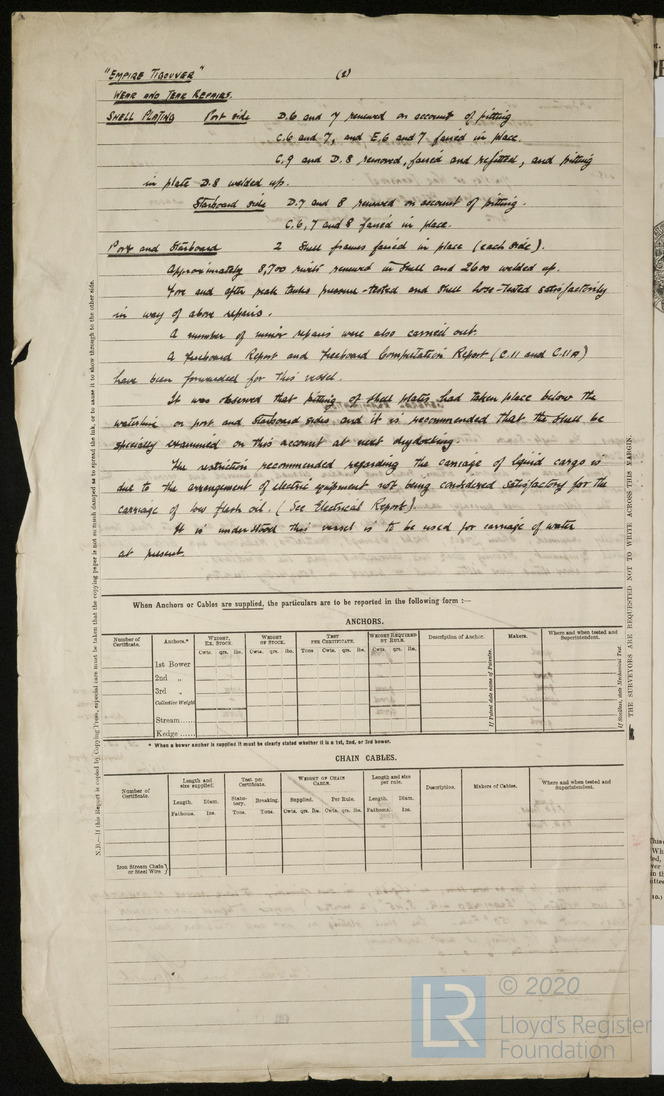 "EMPIRE TIGOUVER" (2)
WEAR AND TEAR REPAIRS.
SHELL PLATING Port side D.6 and 7 renewed on account of pitting
C.6 and 7, and E.6 and 7 faired in place.
C.9 and D.8 removed, faired and refitted, and pitting
in plate D.8 welded up.
Starboard side D.7 and 8 renewed on account of pitting.
C.6, 7 and 8 faired in place.
Port and Starboard 2 Shell frames faired in place (each side).
Approximately 8,700 rivets renewed in shell and 2600 welded up.
Fore and after peak tanks pressure-tested and shell hose-tested satisfactorily
in way of above repairs.
A number of minor repairs were also carried out.
A Freeboard Report and Freeboard Computation Report (C.11 and C.11A)
have been forwarded for this vessel.
It was observed that pitting of shell plates had taken place below the
waterline on port and starboard sides and it is recommended that the shell be
specially examined on this account at next drydocking.
The restriction recommended regarding the carriage of liquid cargo is
due to the arrangement of electric equipment not being considered satisfactory for the
carriage of low flash oil. (See Electrical Report).
It is understood this vessel is to be used for carriage of water
at present.
When Anchors or Cables are supplied, the particulars are to be reported in the following form :—
ANCHORS.
Number of Certificate. Anchors.* WEIGHT, EX. STOCK. WEIGHT OF STOCK. TEST PER CERTIFICATE. WEIGHT REQUIRED BY RULE. Description of Anchor. Makers. Where and when tested and Superintendent.
Cwts. qrs. lbs. Cwts. qrs. lbs. Tons Cwts. qrs. lbs. Cwts. qrs. lbs.
1st Bower
2nd „
3rd „
Collective Weight
Stream
Kedge
If Patent state name of Patentee.
If Stockless, state Mechanical Test.
* When a bower anchor is supplied it must be clearly stated whether it is a 1st, 2nd, or 3rd bower.
CHAIN CABLES.
Number of Certificate. Length and size supplied. Test per Certificate. WEIGHT OF CHAIN CABLE. Length and size per rule. Description. Makers of Cables. Where and when tested and Superintendent.
Length. Diam. Statutory. Breaking. Supplied. Per Rule. Length. Diam.
Fathoms. Ins. Tons. Tons. Cwts. qrs. lbs. Cwts. qrs. lbs. Fathoms. Ins.
Iron Stream Chain or Steel Wire
N.B.—If this Report is copied by Copying Press, especial care must be taken that the copying paper is not so much damped as to spread the ink, or to cause it to show through to the other side.
THE SURVEYORS ARE REQUESTED NOT TO WRITE ACROSS THIS MARGIN.
LR © 2020
Lloyd's Register
Foundation